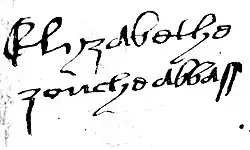 Elizabethe
zouche abbass